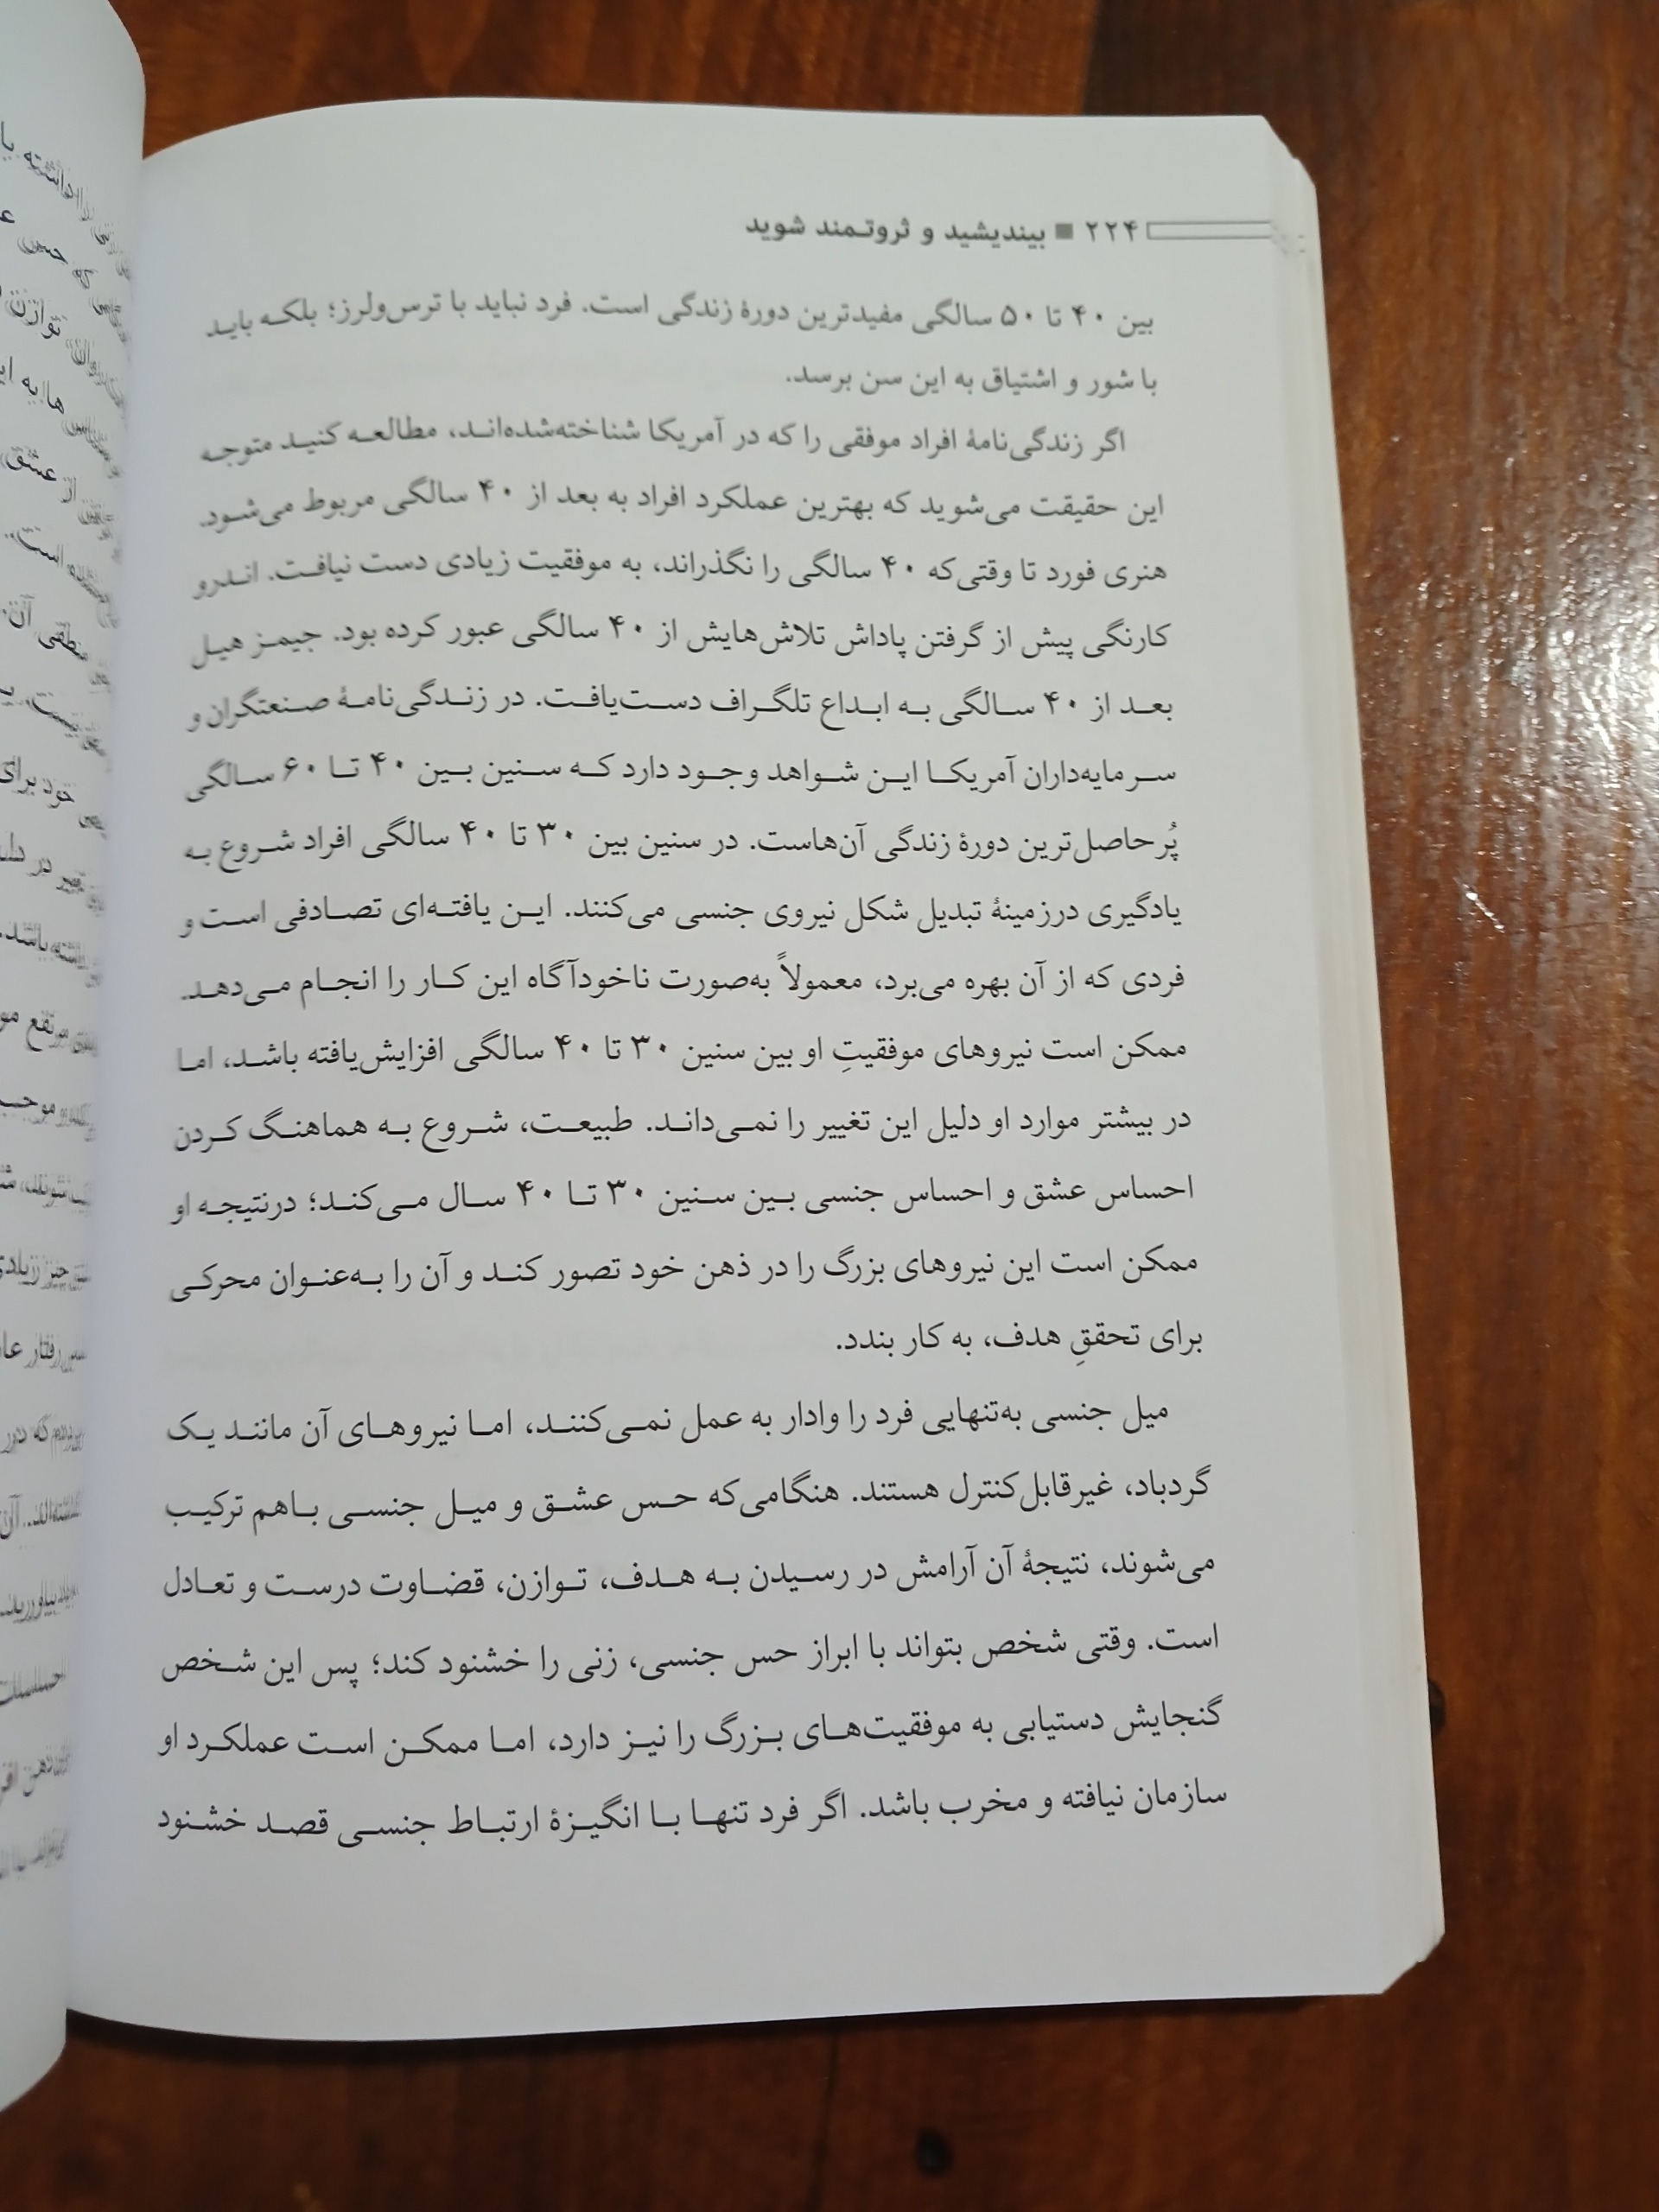 ۲۲۴ ■ بیندیشید و ثروتمند شوید
بین ۴۰ تا ۵۰ سالگی مفیدترین دورهٔ زندگی است. فرد نباید با ترس‌ولرز؛ بلکه باید
با شور و اشتیاق به این سن برسد.
اگر زندگی‌نامهٔ افراد موفقی را که در آمریکا شناخته‌شده‌اند، مطالعه کنید متوجه
این حقیقت می‌شوید که بهترین عملکرد افراد به بعد از ۴۰ سالگی مربوط می‌شود.
هنری فورد تا وقتی‌که ۴۰ سالگی را نگذراند، به موفقیت زیادی دست نیافت. اندرو
کارنگی پیش از گرفتن پاداش تلاش‌هایش از ۴۰ سالگی عبور کرده بود. جیمز هیل
بعد از ۴۰ سالگی به ابداع تلگراف دست‌یافت. در زندگی‌نامهٔ صنعتگران و
سرمایه‌داران آمریکا این شواهد وجود دارد که سنین بین ۴۰ تا ۶۰ سالگی
پُرحاصل‌ترین دورهٔ زندگی آن‌هاست. در سنین بین ۳۰ تا ۴۰ سالگی افراد شروع به
یادگیری درزمینهٔ تبدیل شکل نیروی جنسی می‌کنند. این یافته‌ای تصادفی است و
فردی که از آن بهره می‌برد، معمولاً به‌صورت ناخودآگاه این کار را انجام می‌دهد.
ممکن است نیروهای موفقیتِ او بین سنین ۳۰ تا ۴۰ سالگی افزایش‌یافته باشد، اما
در بیشتر موارد او دلیل این تغییر را نمی‌داند. طبیعت، شروع به هماهنگ کردن
احساس عشق و احساس جنسی بین سنین ۳۰ تا ۴۰ سال می‌کند؛ درنتیجه او
ممکن است این نیروهای بزرگ را در ذهن خود تصور کند و آن را به‌عنوان محرکی
برای تحققِ هدف، به کار بندد.
میل جنسی به‌تنهایی فرد را وادار به عمل نمی‌کنند، اما نیروهای آن مانند یک
گردباد، غیرقابل‌کنترل هستند. هنگامی‌که حس عشق و میل جنسی باهم ترکیب
می‌شوند، نتیجهٔ آن آرامش در رسیدن به هدف، توازن، قضاوت درست و تعادل
است. وقتی شخص بتواند با ابراز حس جنسی، زنی را خشنود کند؛ پس این شخص
گنجایش دستیابی به موفقیت‌های بزرگ را نیز دارد، اما ممکن است عملکرد او
سازمان نیافته و مخرب باشد. اگر فرد تنها با انگیزهٔ ارتباط جنسی قصد خشنود